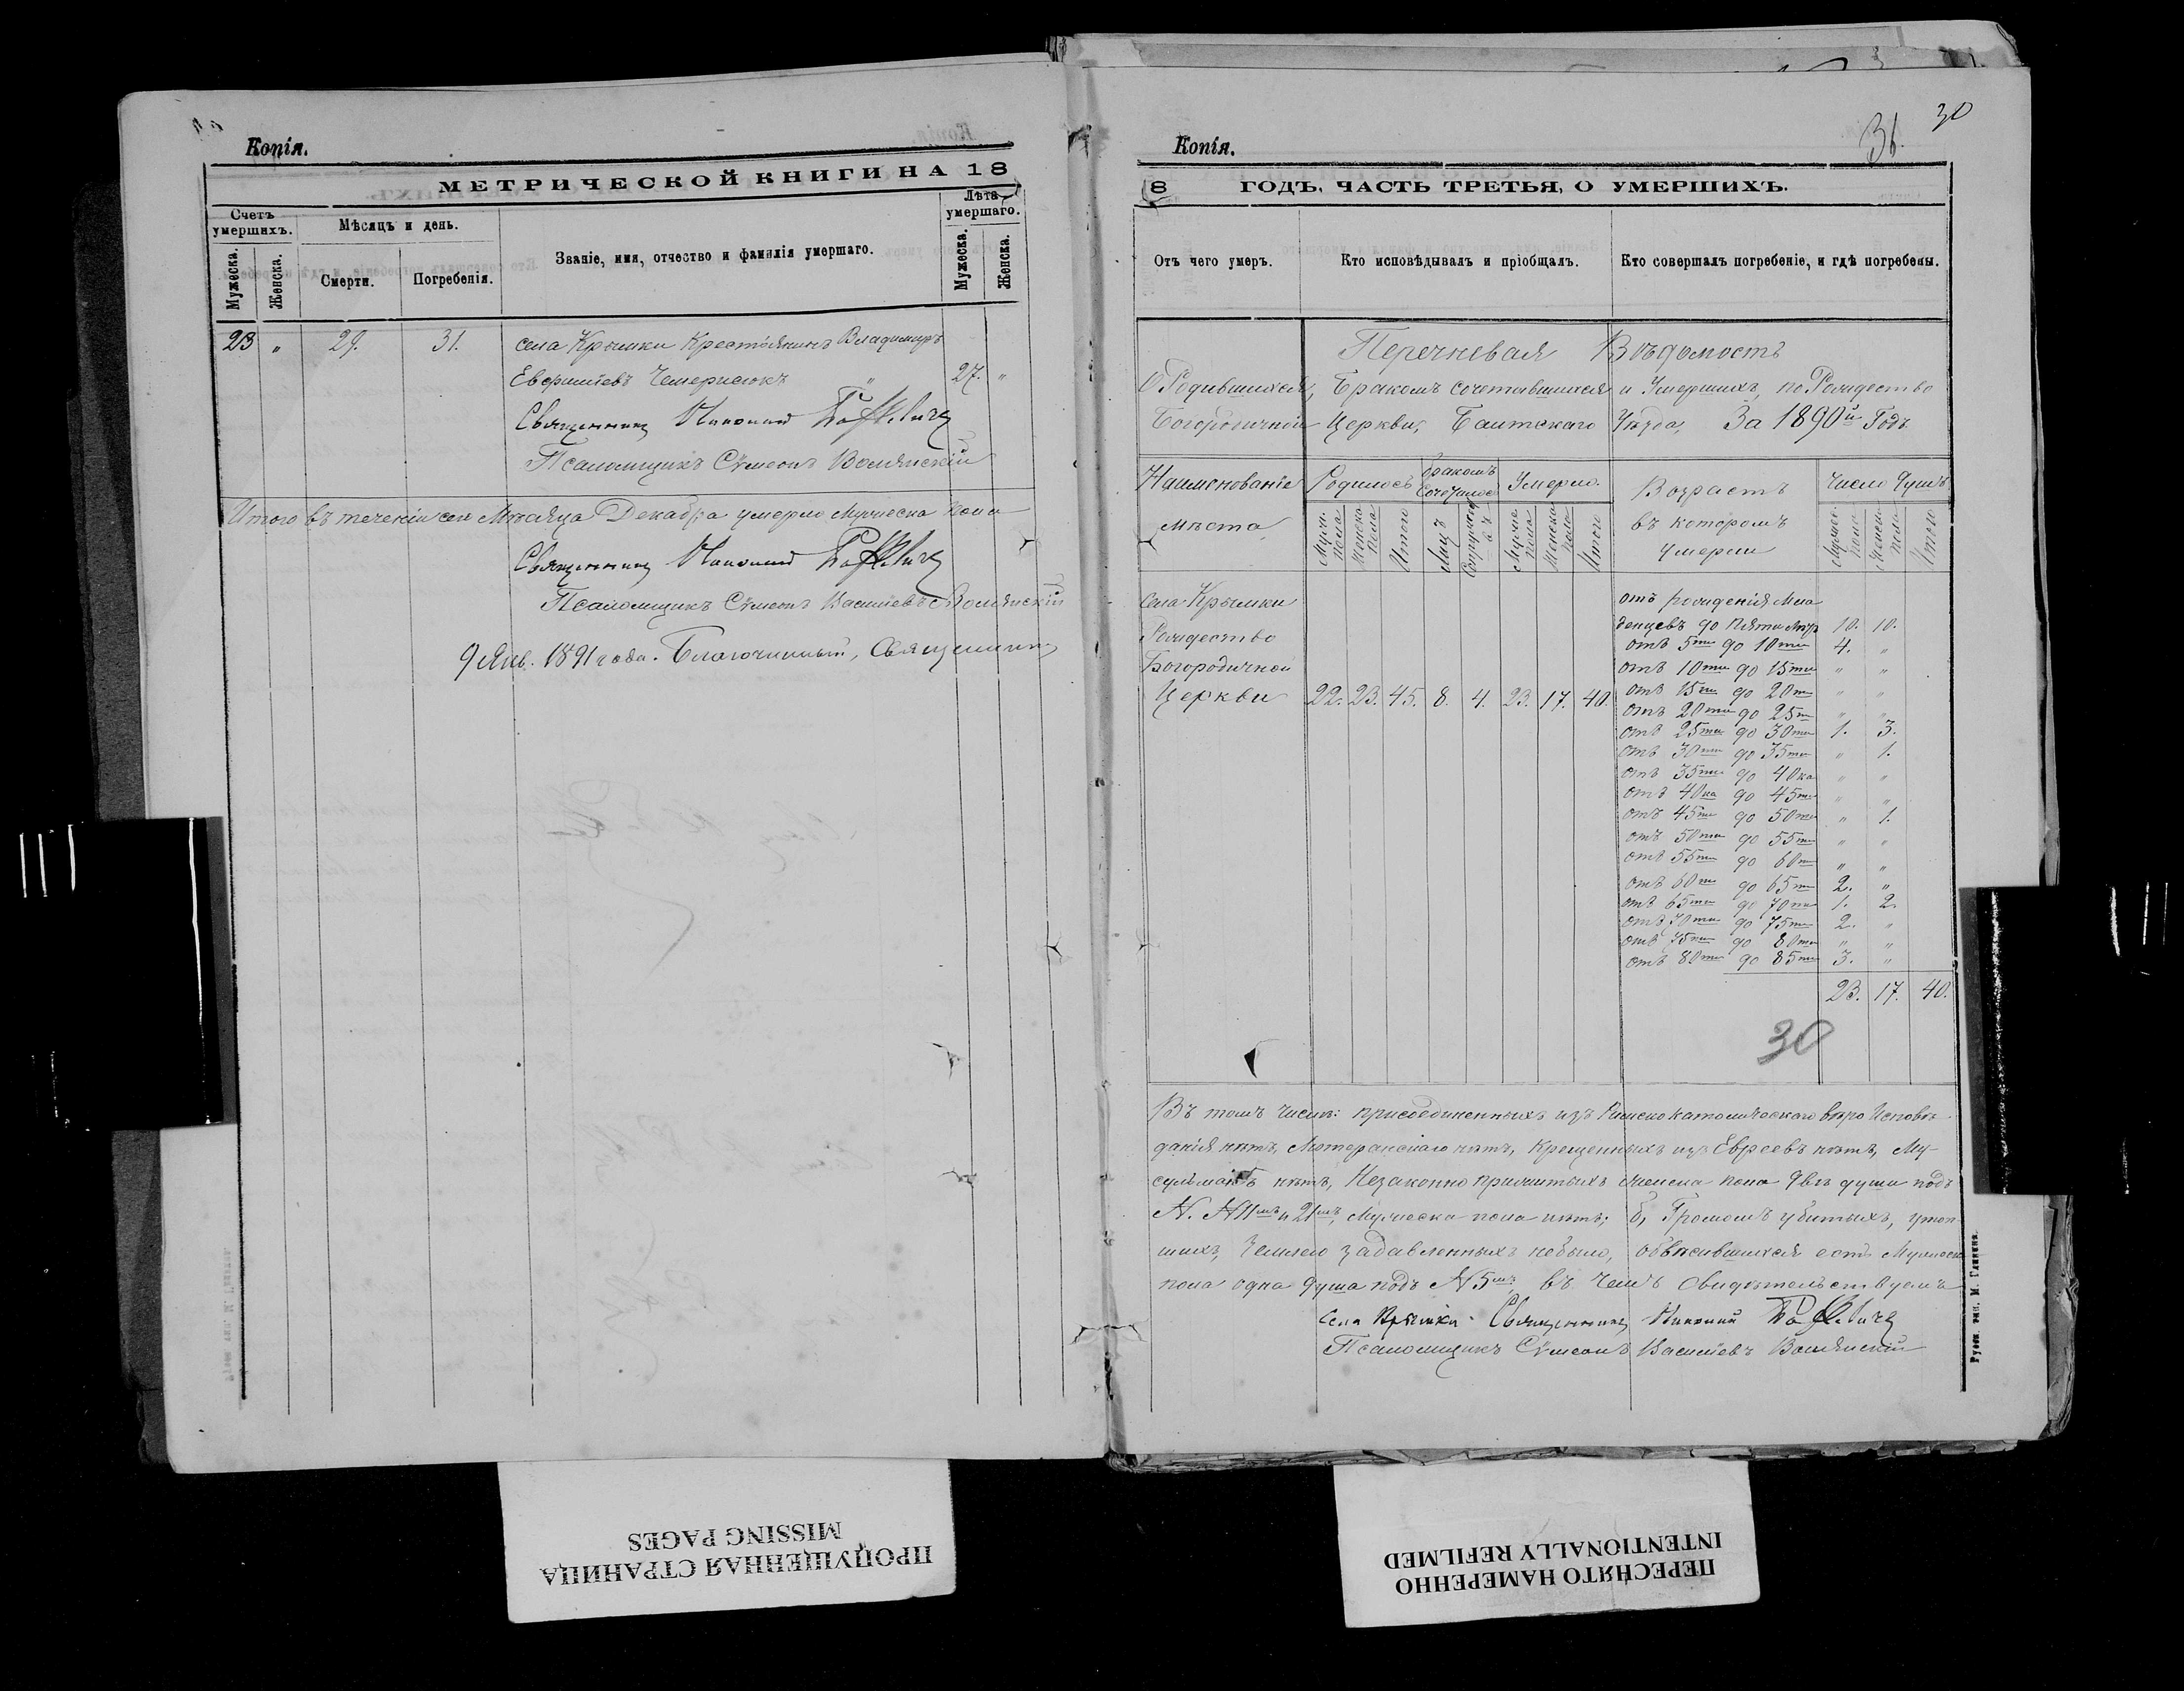 Копія.
МЕТРИЧЕСКОЙ КНИГИ НА 18
Счетъ умершихъ.
Мѣсяцъ и день.
Званіе, имя, отчество и фамилія умершаго.
Лѣта умершаго.
Мужеска.
Женска.
Смерти.
Погребенія.
Мужеска.
Женска.
23 " 29. 31. села Крымки Крестьянинъ Владимиръ
27. "
Священникъ
Псаломщикъ Сѵмеонъ
Итого въ теченіи сего Мѣсяца Декабря умерло Мужеска пола
Священникъ
Псаломщикъ Сѵмеонъ Васильевъ
9 Янв. 1891 года. Благочинный, Священникъ
30
31.
Копія.
18 ГОДЪ, ЧАСТЬ ТРЕТЬЯ, О УМЕРШИХЪ.
Отъ чего умеръ.
Кто исповѣдывалъ и пріобщалъ.
Кто совершалъ погребеніе, и гдѣ погребены.
Перечневая Вѣдомость
О Родившихся, Бракомъ сочетавшихся и Умершихъ, по Рождество
Богородичной Церкви, Балтскаго Уѣзда, За 1890й Годъ
Наименованіе мѣста
Родилось
Бракомъ
Умерло.
Возрастъ въ которомъ умерли
Число Душъ
Муж. пола
Женска пола
Итого
Лицъ
Мужес пола
Женска пола
Итого
Мужес. пола
Женск. пола
Итого
Села Крымки
Рождество
Богородичной
Церкви 22. 23. 45. 8. 4. 23. 17. 40.
отъ рожденія Мла
денцевъ до Пяти лѣтъ 10. 10.
отъ 5ти до 10ти 4. "
отъ 10ти до 15ти " "
отъ 15ти до 20ти " "
отъ 20ти до 25ти " "
отъ 25ти до 30ти 1. 3.
отъ 30ти до 35ти " 1.
отъ 35ти до 40ка " "
отъ 40ка до 45ти " "
отъ 45ти до 50ти " 1.
отъ 50ти до 55ти " "
отъ 55ти до 60ти " "
отъ 60ти до 65ти 2. "
отъ 65ти до 70ти 1. 2.
отъ 70ти до 75ти 2. "
отъ 75ти до 80ти " "
отъ 80ти до 85ти 3. "
23. 17. 40.
30
Въ томъ числѣ: присоединенныхъ изъ Римско католическаго вѣро Исповѣ
данія нѣтъ, Лютеранскаго нѣтъ, Крещенныхъ изъ Евреевъ нѣтъ, Му-
сульманъ нѣтъ, Незаконно прижитыхъ женска пола двѣ души подъ
N. N 11мъ и 21мъ, Мужеска пола нѣтъ; б, Громомъ убитыхъ, утоп
шихъ, Землею задавленныхъ небыло, объвѣсившихся есть Мужеска
пола одна душа подъ N 5мъ, въ чемъ свидѣтельствуемъ
села Крымки Священникъ
Псаломщикъ Сѵмеонъ Васильевъ
Русск. тип. М.
ПРОПУЩЕННАЯ СТРАНИЦА
MISSING PAGES
ПЕРЕСНЯТО НАМЕРЕННО
INTENTIONALLY REFILMED